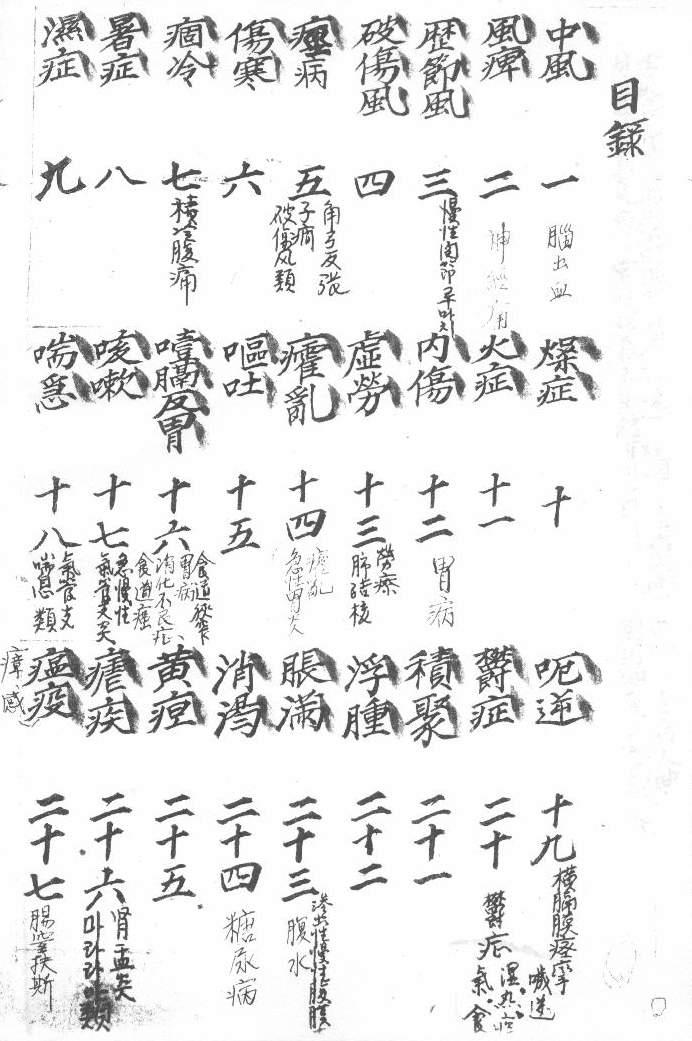 目錄
中風 一 腦出血
風痺 二 神經痛
歷節風 三 慢性関節루마지
破傷風 四
痙病 五 角弓反張 子癎 破傷風類
傷寒 六
痼冷 七 積冷腹痛
暑症 八
濕症 九
燥症 十
火症 十一
內傷 十二 胃病
虛勞 十三 勞瘵 肺結核
癨亂 十四 癨亂 急性胃炎
嘔吐 十五
噎膈反胃 十六 食道狹窄 胃病 消化不良症 食道癌
咳嗽 十七 急慢性 氣管支炎
喘急 十八 氣管支 喘息 類
呃逆 十九 橫膈膜痙攣 噦逆
鬱症 二十 鬱症 濕 熱 痰 氣 食
積聚 二十一
浮腫 二十二
脹滿 二十三 滲出性慢性腹膜 腹水
消渴 二十四 糖尿病
黃疸 二十五
瘧疾 二十六 腎盂炎 마라리아類
瘟疫 二十七 腸窒扶斯
瘴 感